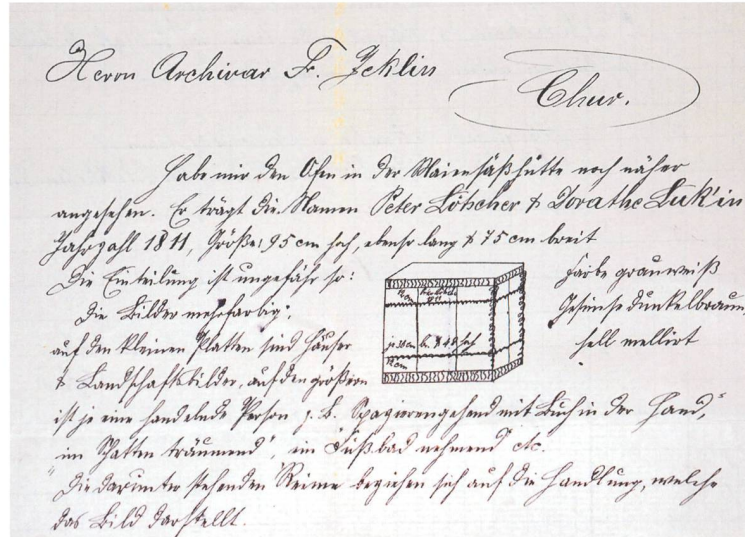 Herrn Archivar F. Jeklin
Chur.
Habe mir den Ofen in der Maiensäßhütte noch näher
angesehen. Er trägt die Namen Peter Lötscher & Dorathe Luk'in
Jahrzahl 1811, Größe: 95 cm hoch, ebenso lang & 75 cm breit
Die Einteilung ist ungefähr so:
Farbe grauweiß
Die Bilder mehrfarbig;
Gesimse dunkelbraun,
auf den kleinen Platten sind Häuser
hell mellirt
& Landschaftsbilder, auf den größern
ist je eine handelnde Person z. B. Spazierengehend mit Buch in der Hand,"
im Schatten träumend", ein Fußbad nehmend" etc.
Die darunter stehenden Reime beziehen sich auf die Handlung, welche
das Bild darstellt.